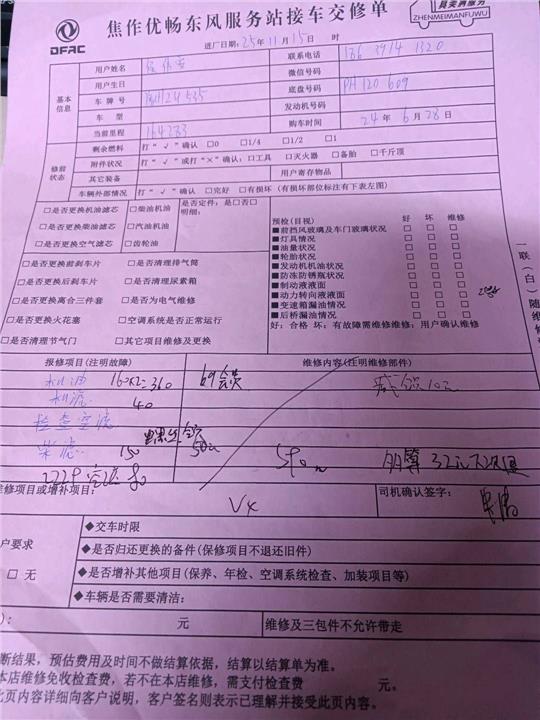 DFAC
焦作优畅东风服务站接车交修单
真芙满服务
ZHENMEIMANFUWU
进厂日期: 25年 11月 15日 时
基本信息
用户姓名
联系电话 186 3914 1320
用户生日
微信号码
车牌号
底盘号码 PH120609
车 型
发动机号码
当前里程 164283
购车时间 24年 6月 28日
修前状态
剩余燃料 打“√”确认 □0 □1/4 □1/2 □1
附件状况 打“√”或打“×”确认: □工具 □灭火器 □备胎 □千斤顶
其它装备
用户寄存物品
车辆外部情况 打“√”确认 □完好 □有损坏 (有损坏部位标注有下表左图)
□是否更换机油滤芯 □柴油机油 是否定件: 是□否□
明细:
□是否更换柴油滤芯 □汽油机油
□是否更换空气滤芯 □齿轮油
□是否更换前刹车片 □是否清理排气筒
□是否更换后刹车片 □是否清理尿素箱
□是否更换离合三件套 □是否为电气维修
□是否更换火花塞 □空调系统是否正常运行
□是否清理节气门 □其它项目维修及更换
预检(目视) 好 坏 维修
■前挡风玻璃及车门玻璃状况 □ □ □
■灯具情况 □ □ □
■油量状况 □ □ □
■轮胎状况 □ □ □
■发动机机油情况 □ □ □
■防冻防锈瓶状况 □ □ □
■制动液液面 □ □ □
■动力转向液液面 □ □ □
■变速箱漏油情况 □ □ □
■后桥漏油情况 □ □ □
好: 合格 坏: 有故障需维修维修: 用户确认维修
一联(白)随维修
报修项目(注明故障)
维修内容(注明维修部件)
机油 16×2= 360
机滤 40
检查空滤
柴滤 150
50元
590元
维修项目或增补项目:
司机确认签字:
户要求
□ 无
◆交车时限
◆是否归还更换的备件(保修项目不退还旧件)
◆是否增补其他项目(保养、年检、空调系统检查、加装项目等)
◆车辆是否需要清洁:
): 元
维修及三包件不允许带走
断结果, 预估费用及时间不做结算依据, 结算以结算单为准。
本店维修免收检查费, 若不在本店维修, 需支付检查费 元。
此页内容详细向客户说明, 客户签名则表示已理解并接受此页内容。